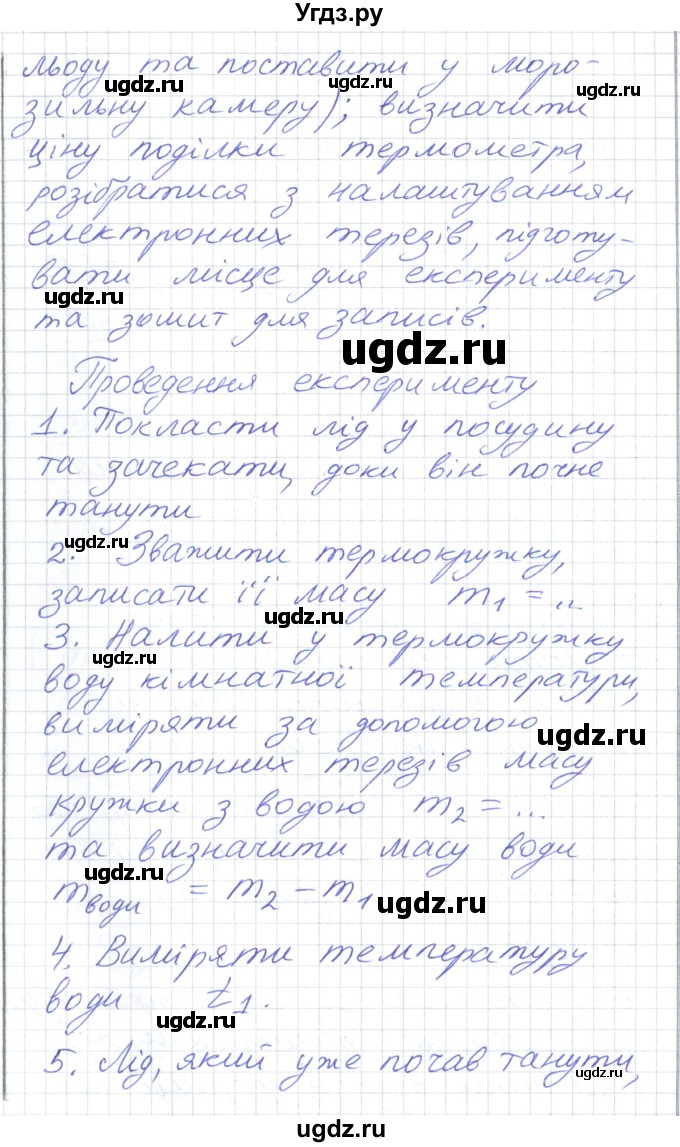 Угдз.ру
льоду та поставити у моро-
зильну камеру); визначити
ціну поділки термометра,
розібратися з налаштуванням
електронних терезів, підготу-
вати місце для експерименту
та зошит для записів.
Проведення експерименту
1. Покласти лід у посудину
та зачекати, доки він почне
танути
2. Зважити термокружку,
записати її масу m₁ = ...
3. Налити у термокружку
воду кімнатної температури,
виміряти за допомогою
електронних терезів масу
кружки з водою m₂ = ...
та визначити масу води
mводи = m₂ − m₁
4. Виміряти температуру
води t₁.
5. Лід, який уже почав танути,
ugdz.ru
ugdz.ru
ugdz.ru
ugdz.ru
ugdz.ru
ugdz.ru
ugdz.ru
ugdz.ru
ugdz.ru
ugdz.ru
ugdz.ru
ugdz.ru
Угдз.ру